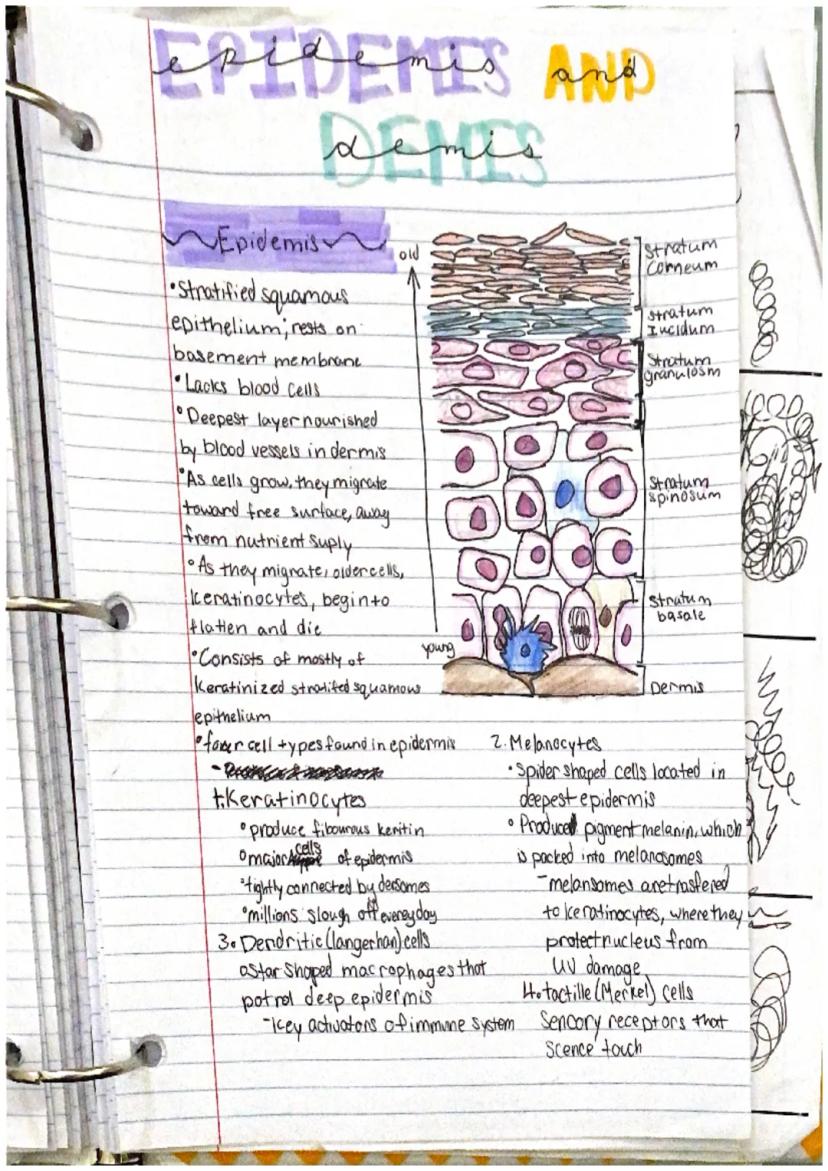 EPIDEMIS AND
epidemis and
DEMIS
demis
Epidemis
•Stratified squamous
epithelium; rests on
basement membrane
•Lacks blood cells
•Deepest layer nourished
by blood vessels in dermis
•As cells grow, they migrate
toward free surface, away
from nutrient suply
•As they migrate, older cells,
keratinocytes, begin to
flatten and die
•Consists of mostly of
keratinized stratifed squamous
epithelium
old
young
Stratum
Corneum
Stratum
lucidum
Stratum
granulosm
Stratum
spinosum
Stratum
basale
Dermis
•four cell types found in epidermis
1. Keratinocytes
•produce fibourous keritin
•major cells of epidermis
•tightly connected by desomes
•millions slough off everyday
3. Dendritic (langerhan) cells
•star shaped macrophages that
patrol deep epidermis
-key activators of immune system
2. Melanocytes
•Spider shaped cells located in
deepest epidermis
•Produce pigment melanin, which
is packed into melanosomes
-melansomes are trasfered
to keratinocytes, where they
protect nucleus from
UV damage
4. tactille (Merkel) cells
Sencory receptors that
scence touch